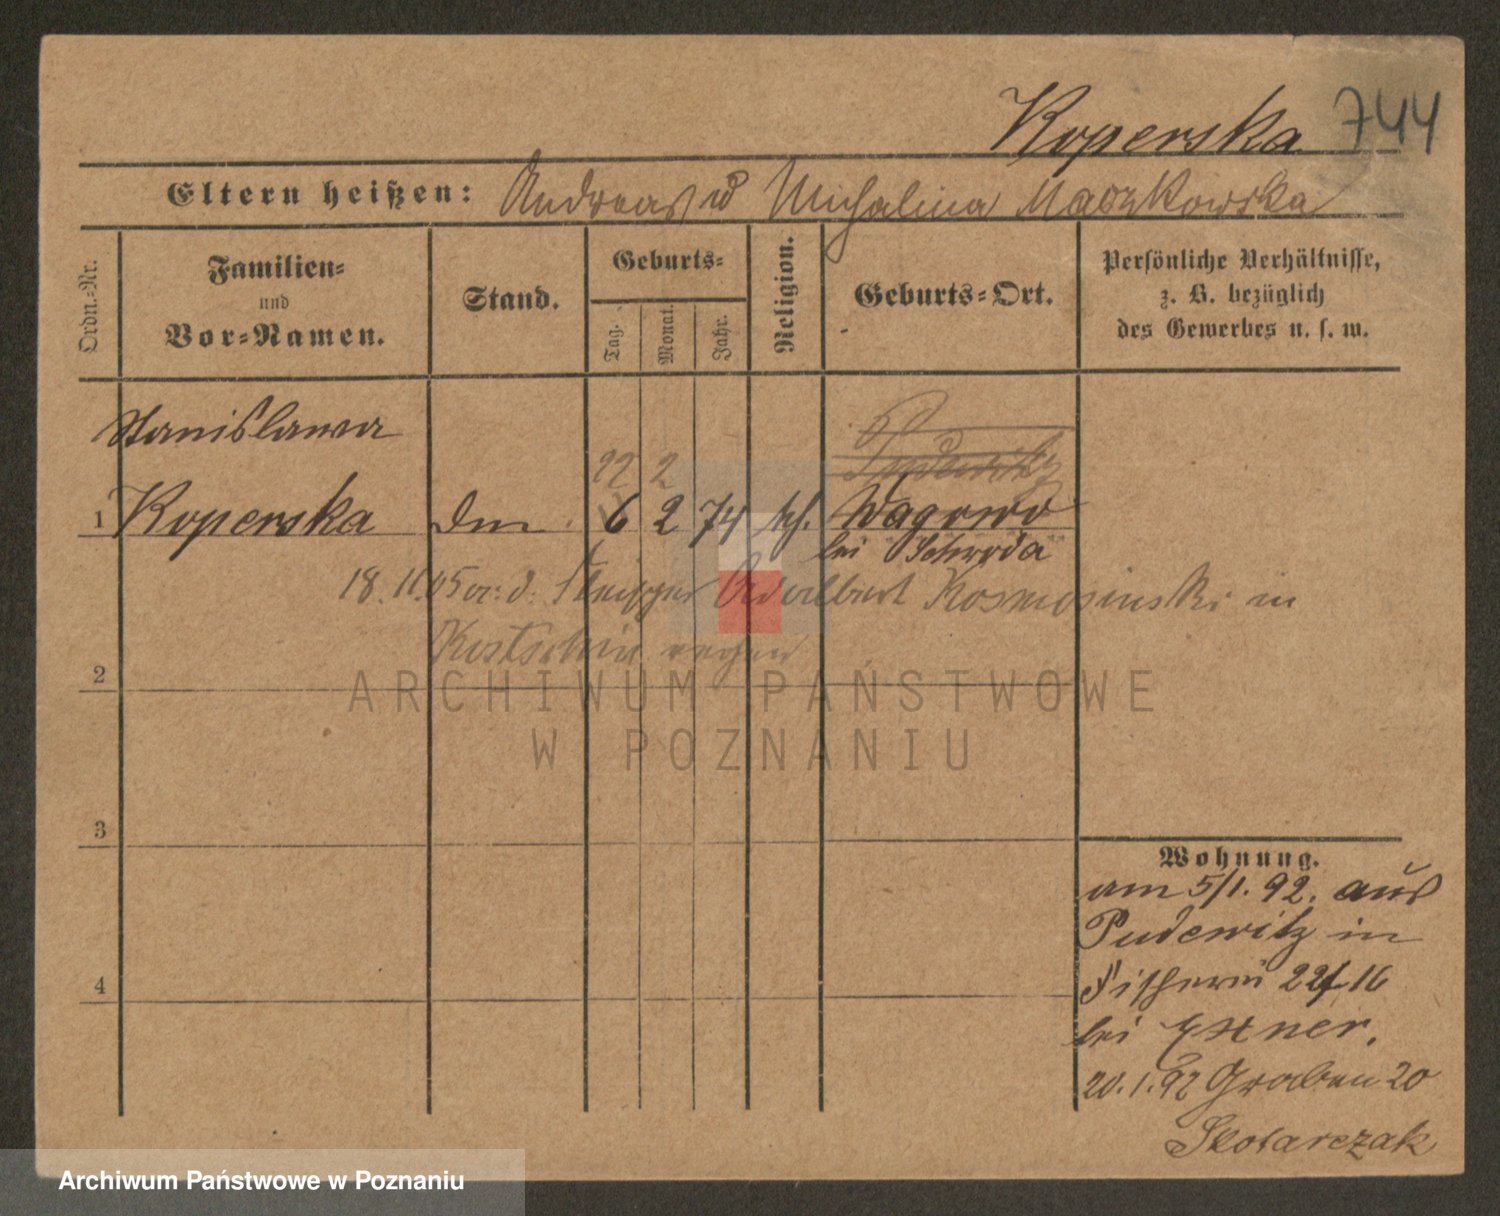 Koperska 744
Eltern heißen: Andreas u Michalina Maczkowska
Ordn.-Nr.
Familien-
und
Vor-Namen.
Stand.
Geburts-
Tag.
Monat.
Jahr.
Religion.
Geburts-Ort.
Persönliche Verhältnisse,
z. B. bezüglich
des Gewerbes u. s. w.
Stanislawa
Pudewitz
22 2
1 Koperska 6 2 74 kth. Wagowo
bei Schroda
18.11.05 Adalbert Kosmosinski in
Kostschin
2
3
4
Wohnung.
am 5/1. 92. aus
Pudewitz in
Fischerei 16
bei Exner.
20.1.92 Graben 20
Skotarczak
ARCHIWUM PAŃSTWOWE
W POZNANIU
Archiwum Państwowe w Poznaniu